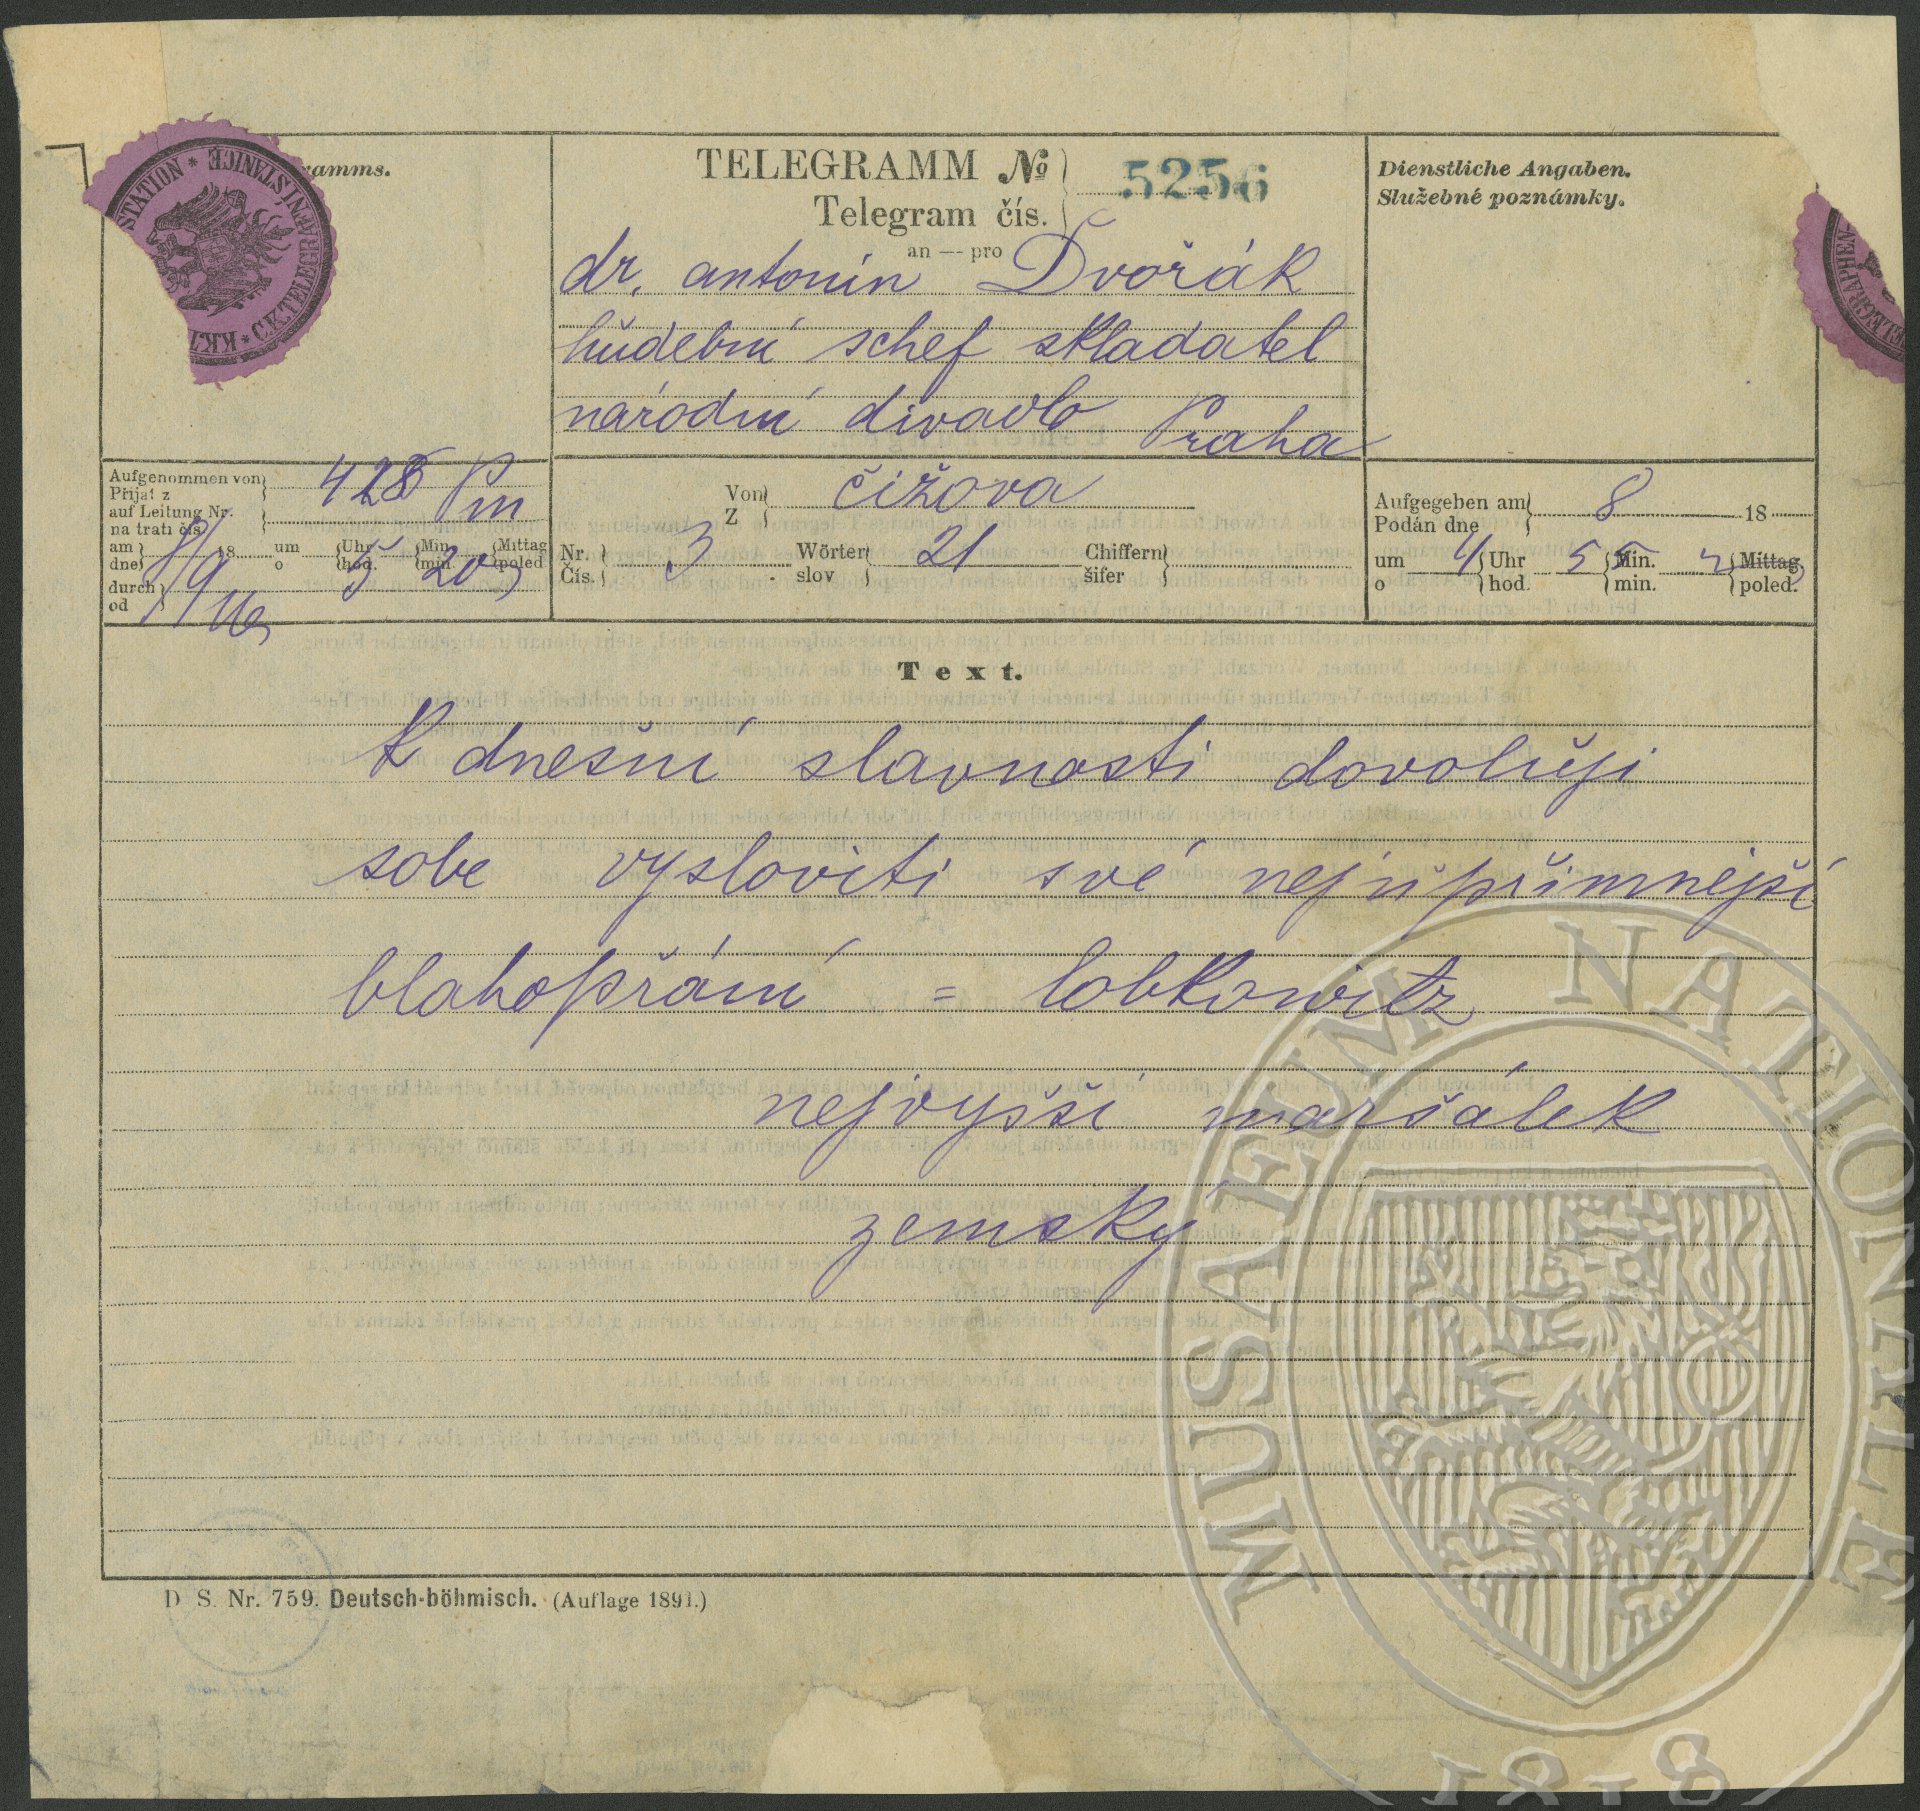 amms.
TELEGRAMM №
Telegram čís.
5256
an — pro
Dienstliche Angaben.
Služebné poznámky.
STATION * STANICE
C.K.TELEGRAFNÍ
dr. antonín Dvořák
hudební schef skladatel
národní divadlo Praha
Aufgenommen von
Přijat z
428 Pm
auf Leitung Nr.
na trati čís.
am
dne
8/9
18
um
o
Uhr
hod.
5
Min.
min.
20
Mittag
poled
durch
od
Von
Z
čižova
Nr.
Čís.
3
Wörter
slov
21
Chiffern
šifer
Aufgegeben am
Podán dne
8
18
um
o
4
Uhr
hod.
55
Min.
min.
Mittag
poled.
Text.
K dnešní slavnosti dovoluji
sobe vysloviti své nejúpřímnejší
blahopřání = lobkowitz
nejvyšší maršálek
zemský
D. S. Nr. 759. Deutsch-böhmisch. (Auflage 1891.)
MUSAEUM NATIONALE
1818